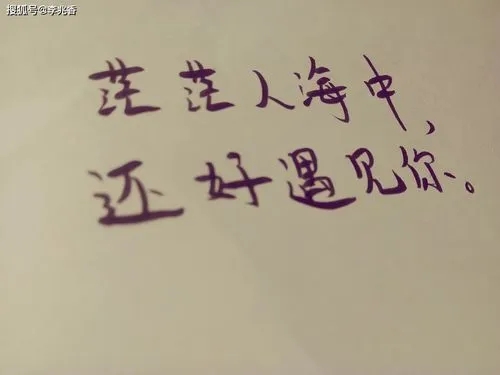 搜狐号@李兆香
茫茫人海中,
还好遇见你。